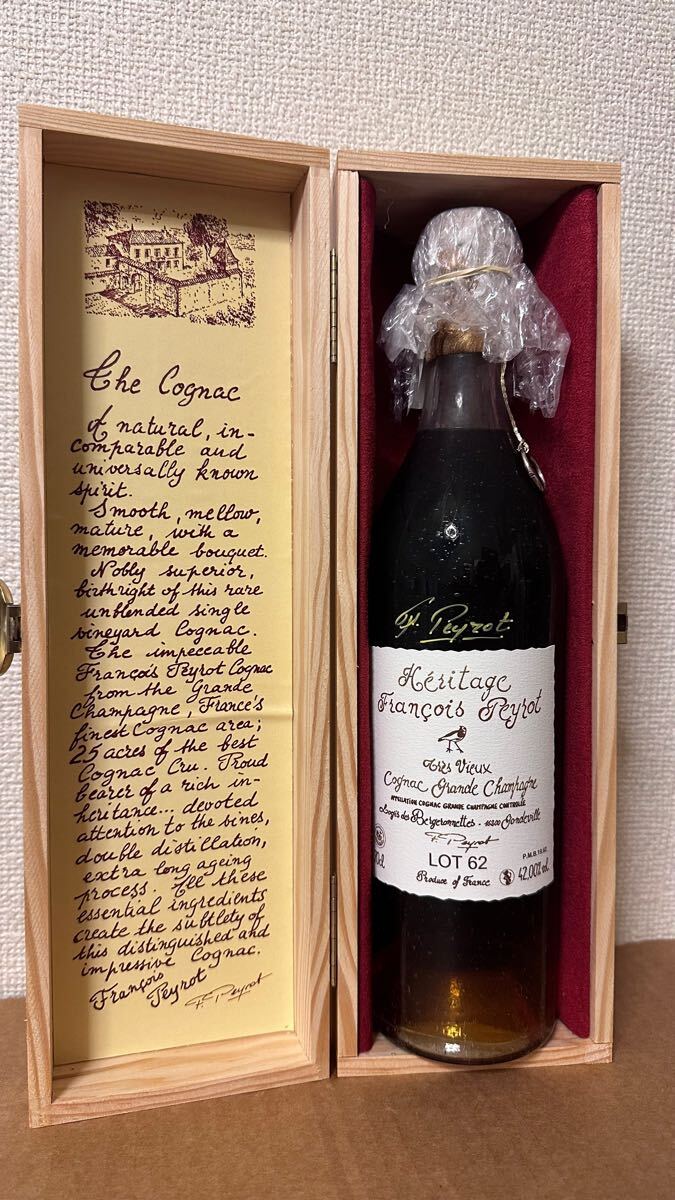 The Cognac
of natural, in-
comparable and
universally known
spirit.
Smooth, mellow,
mature, with a
memorable bouquet.
Nobly superior,
birthright of this rare
unblended single
vineyard Cognac.
The impeccable
François Peyrot Cognac
from the Grande
Champagne, France's
finest Cognac area;
25 acres of the best
Cognac Cru. Proud
bearer of a rich in-
heritance... devoted
attention to the vines,
double distillation,
extra long ageing
process. All these
essential ingredients
create the subtlety of
this distinguished and
impressive Cognac.
François
Peyrot
F. Peyrot
Peyrot
Héritage
François Peyrot
Très Vieux
Cognac Grande Champagne
APPELLATION COGNAC GRANDE CHAMPAGNE CONTROLÉE
Logis des Bergeronnettes - 16200 Gondeville
F. Peyrot
LOT 62
Produce of France
42,00% vol.